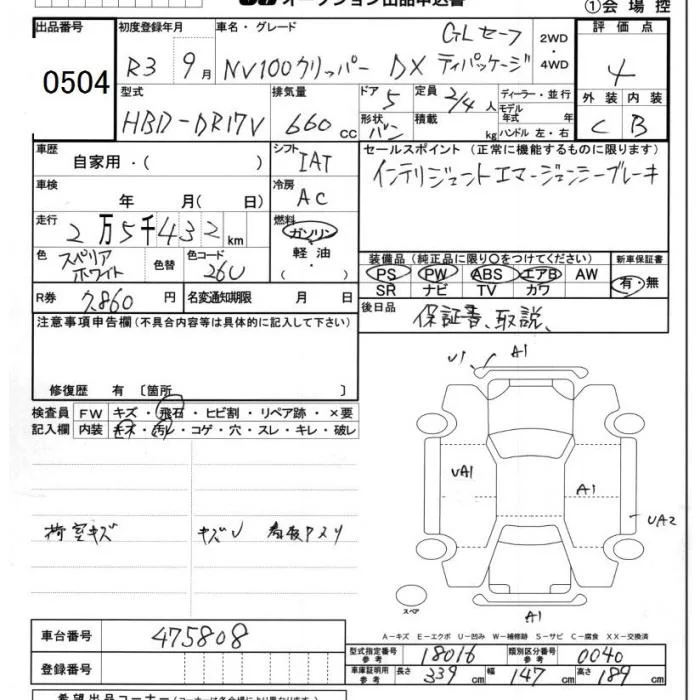 オークション出品申込書
①会場控
出品番号 0504
初度登録年月 R3 9月
車名・グレード NV100クリッパー DX GLセーフティパッケージ
2WD・4WD
評価点 4
外装 C 内装 B
型式 HBD-DR17V
排気量 660 cc
ドア 5
形状 バン
定員 2/4 人
積載 kg
ディーラー・並行
モデル年式 年式
ハンドル 左・右
車歴 自家用・( )
シフト IAT
セールスポイント (正常に機能するものに限ります)
インテリジェントエマージェンシーブレーキ
車検 年 月(日)
冷房 AC
走行 2万5千432km
燃料 ガソリン・軽油・( )
色 スペリアホワイト 色替 色コード 26U
装備品 (純正品に限り○をつけてください)
PS PW ABS エアB AW
SR ナビ TV カワ
新車保証書 有・無
R券 7,860円
名変通知期限 月 日
後日品 保証書、取説、
注意事項申告欄(不具合内容等は具体的に記入して下さい)
修復歴 有〔箇所 〕
検査員記入欄
FW キズ・飛石・ヒビ割・リペア跡・×要
内装 キズ・汚レ・コゲ・穴・スレ・キレ・破レ
荷室キズ
キズU
U1 A1
UA1
A1
UA2
A1
スペア
A-キズ E-エクボ U-凹み W-補修跡 S-サビ C-腐食 XX-交換済
車台番号 475808
登録番号
型式指定番号 参考 18016
類別区分番号 参考 0040
車庫証明用 参考 長さ 339 cm 幅 147 cm 高さ 189 cm
希望出品コーナー